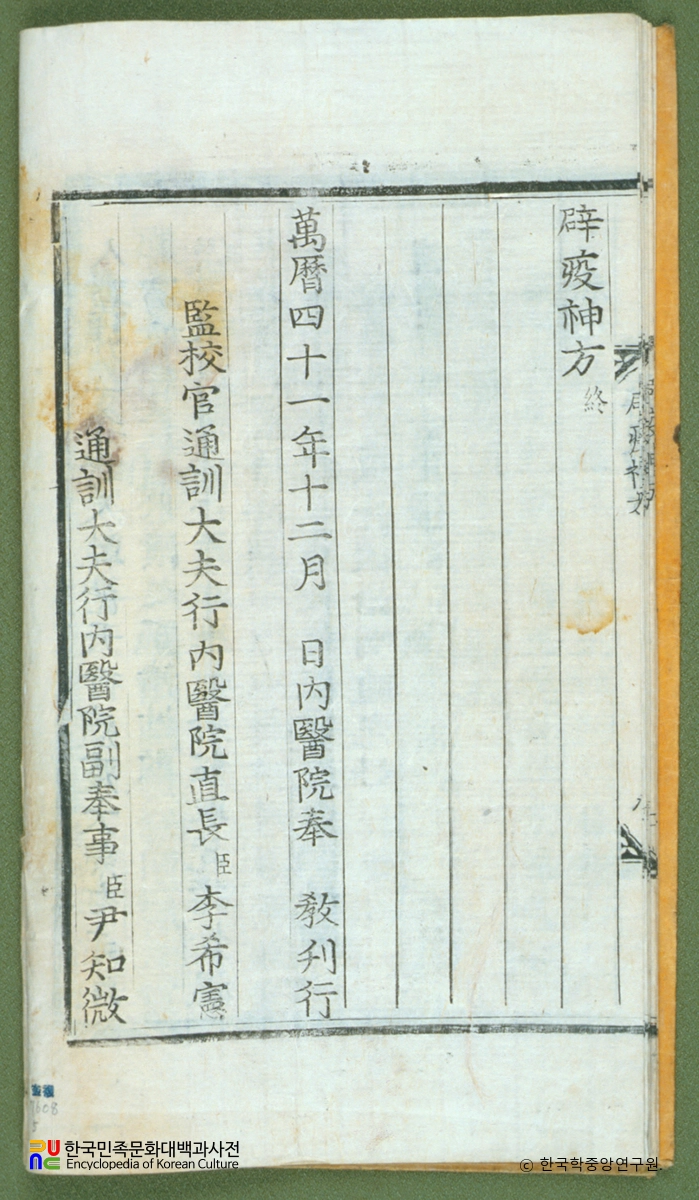 辟疫神方 終
萬曆四十一年十二月 日內醫院奉 敎刊行
監校官通訓大夫行內醫院直長 臣 李希憲
通訓大夫行內醫院副奉事 臣 尹知微
한국민족문화대백과사전
Encyclopedia of Korean Culture
© 한국학중앙연구원